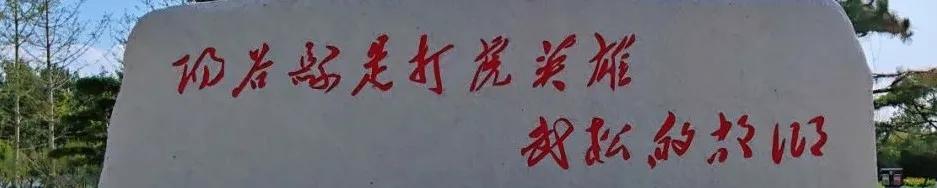 阳谷县是打虎英雄
武松的故乡